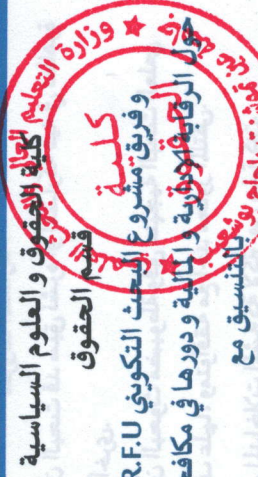 كلية الحقوق و العلوم السياسية
قسم الحقوق
و فريق مشروع البحث التكويني P.R.F.U
حول الرقابة الإدارية و المالية و دورها في مكافحة
بالتنسيق مع
وزارة التعليم العالي
كلية
الحقوق
بلحاج بوشعيب